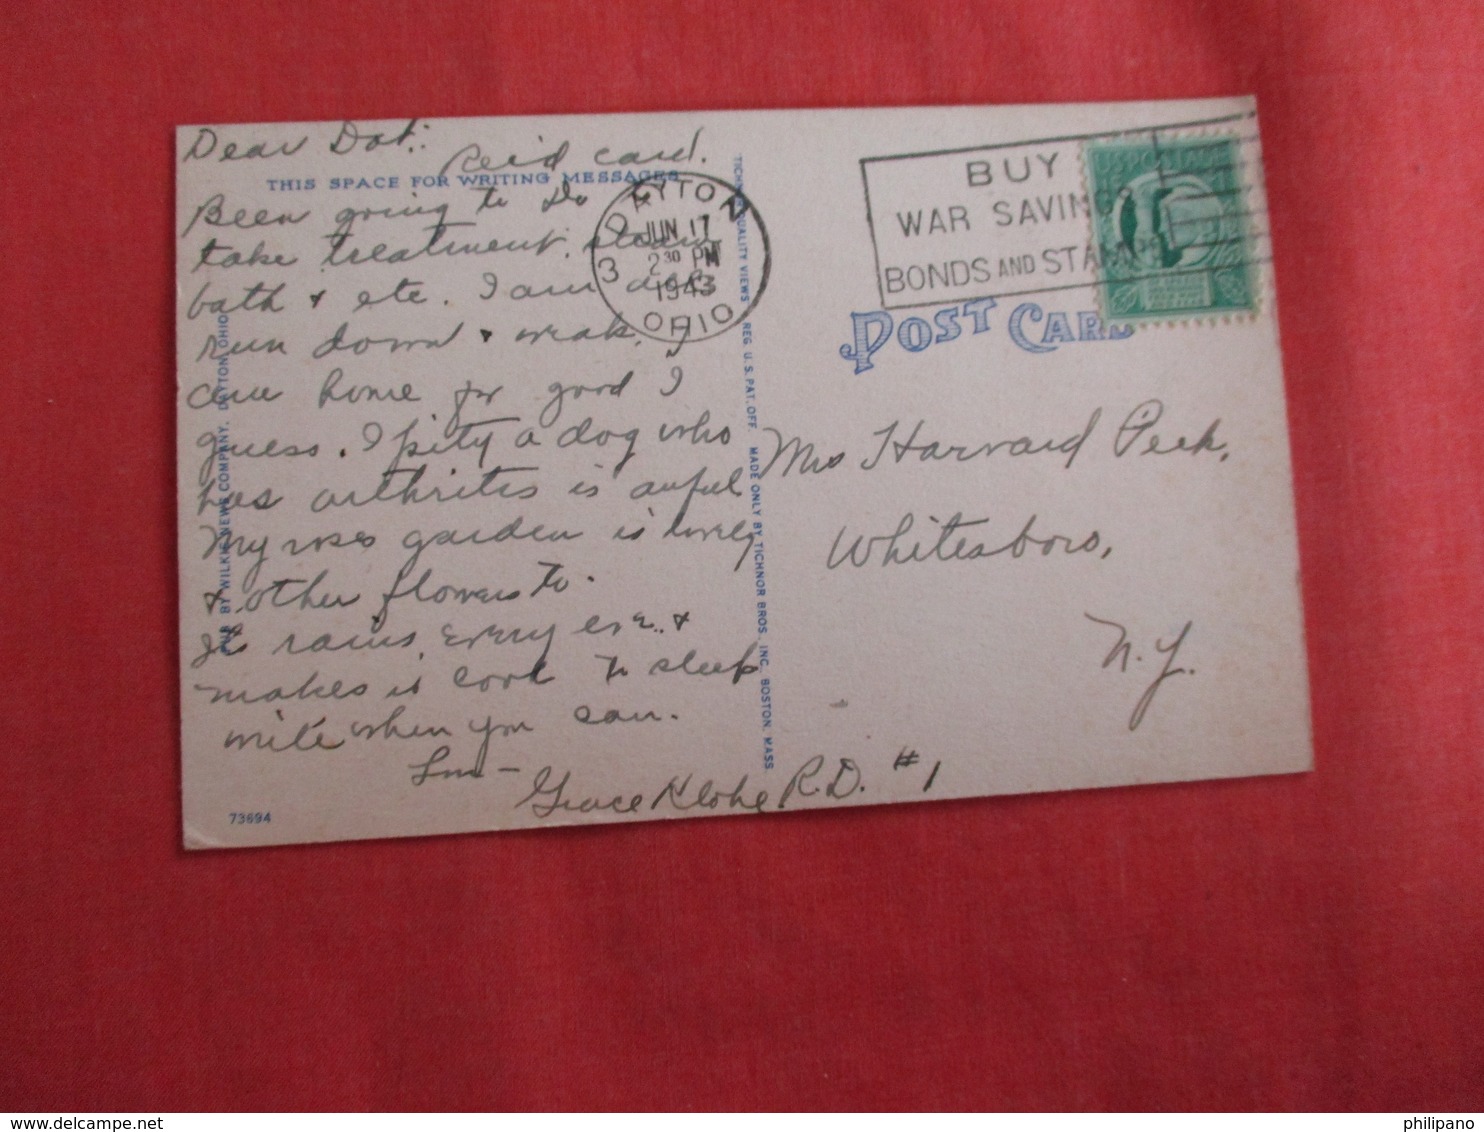 Dear Dot:
Rec'd card.
THIS SPACE FOR WRITING MESSAGES
Been going to Dr
take treatment, steam
bath & etc. I am all
run down & weak. I
am home for good I
guess. I pity a dog who
has arthritis is awful
My roses garden is lovely
& other flowers to.
It rains every eve. &
makes it cool to sleep
write when you can.
Grace R.D. #1
73694
BY WILKIE NEWS COMPANY, DAYTON, OHIO
TICHNOR QUALITY VIEWS REG. U.S. PAT. OFF. MADE ONLY BY TICHNOR BROS. INC. BOSTON, MASS.
DAYTON
JUN 17
2 30 PM
1943
3 OHIO
BUY
WAR SAVINGS
BONDS AND STAMPS
US POSTAGE
POST CARD
Mrs Harvard Peck,
Whitesboro,
N.Y.
philipano